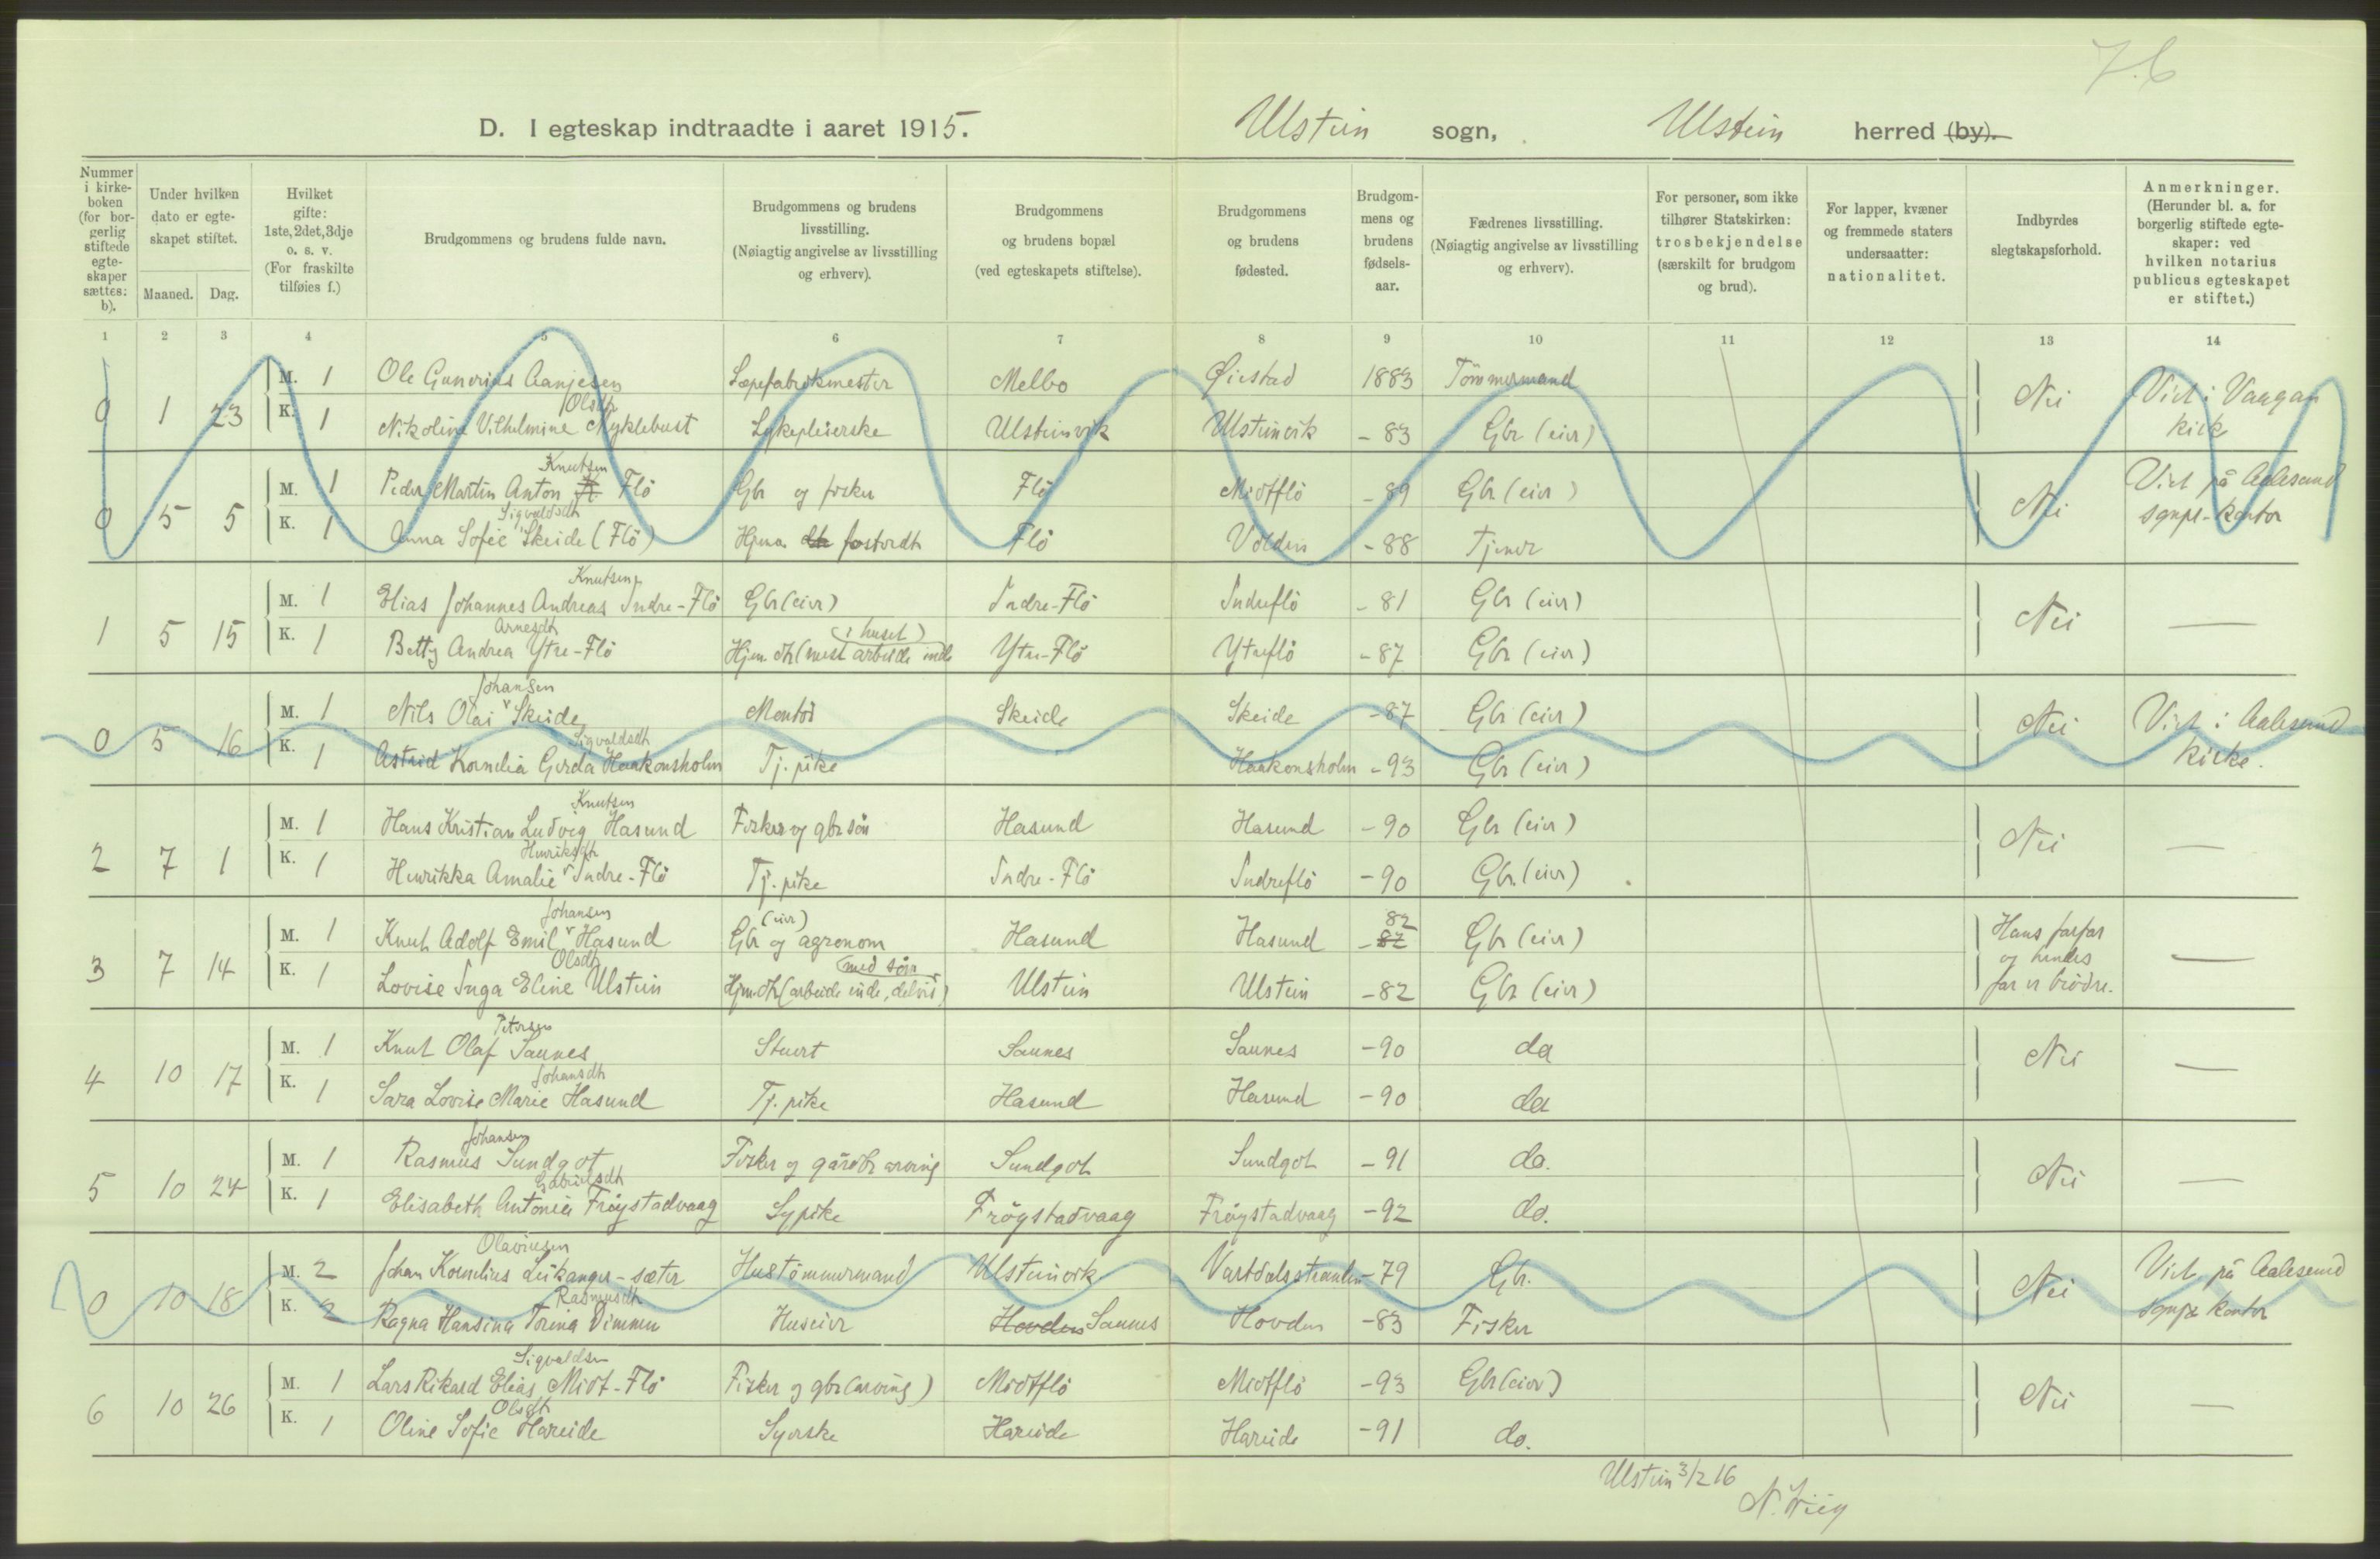 7.6
D. I egteskap indtraadte i aaret 1915. Ulstein sogn, Ulstein herred (by).
Nummer i kirke-boken (for bor-gerlig stiftede egte-skaper sættes: b). Under hvilken dato er egte-skapet stiftet. Maaned. Dag. Hvilket gifte: 1ste, 2det, 3dje o. s. v. (For fraskilte tilføies f.) Brudgommens og brudens fulde navn. Brudgommens og brudens livsstilling. (Nøiagtig angivelse av livsstilling og erhverv). Brudgommens og brudens bopæl (ved egteskapets stiftelse). Brudgommens og brudens fødested. Brudgom-mens og brudens fødsels-aar. Fædrenes livsstilling. (Nøiagtig angivelse av livsstilling og erhverv). For personer, som ikke tilhører Statskirken: trosbekjendelse (særskilt for brudgom og brud). For lapper, kvæner og fremmede staters undersaatter: nationalitet. Indbyrdes slegtskapsforhold. Anmerkninger. (Herunder bl. a. for borgerlig stiftede egte-skaper: ved hvilken notarius publicus egteskapet er stiftet.)
1 2 3 4 5 6 7 8 9 10 11 12 13 14
0 1 23 M. 1 Ole Gunerius Aanjesen Sæpefabrikmester Melbo Øiestad 1883 Tömmermand Nei Viet i Vaagan kirk
K. 1 Nikoline Vilhelmine Olsdtr Myklebust Sykepleierske Ulsteinvik Ulsteinvik - 83 Gbr (eier)
0 5 5 M. 1 Peder Martin Anton Knutsen Flö Gbr og fisker Flö Midtflö - 89 Gbr (eier) Nei Viet på Aalesund sgnpr-kontor
K. 1 Anna Sofie Sigvaldsdt Skeide (Flö) Hjem. fosterdt Flö Volden - 88 Tjener
1 5 15 M. 1 Elias Johannes Andreas Knutsen Indre-Flö Gbr (eier) Indre-Flö Indreflö - 81 Gbr (eier) Nei —
K. 1 Betty Andrea Arnesdt Ytre-Flö Hjem. dt (mest arbeide inde i huset) Ytre-Flö Ytreflö - 87 Gbr (eier)
0 5 16 M. 1 Nils Olai Johansen Skeide Montör Skeide Skeide - 87 Gbr (eier) Nei Viet i Aalesund kirke.
K. 1 Astrid Kornelia Gerda Sigvaldsdt Haakonsholm Tj. pike Haakonsholm - 93 Gbr (eier)
2 7 1 M. 1 Hans Kristian Ludvig Knutsen Hasund Fisker og gbr sön Hasund Hasund - 90 Gbr (eier) Nei —
K. 1 Henrikka Amalie Henriksdt Indre-Flö Tj. pike Indre-Flö Indreflö - 90 Gbr. (eier)
3 7 14 M. 1 Knut Adolf Emil Johansen Hasund Gbr (eier) og agronom Hasund Hasund - 87 82 Gbr (eier) Hans farfar og hendes far er brödre. —
K. 1 Lovise Inga Eline Olsdt Ulstein Hjem. dt (arbeide inde, delvis med söm) Ulstein Ulstein - 82 Gbr (eier)
4 10 17 M. 1 Knut Olaf Petersen Saunes Stuert Saunes Saunes - 90 do Nei —
K. 1 Sara Lovise Marie Johansdt Hasund Tj. pike Hasund Hasund - 90 do
5 10 24 M. 1 Rasmus Johansen Sundgot Fisker og gårdbr arving Sundgot Sundgot - 91 do. Nei —
K. 1 Elisabeth Antonia Gabrielsdt Fröystadvaag Sypike Frögstadvaag Fröystadvaag - 92 do.
0 10 18 M. 2 Johan Kornelius Olavinsen Leikanger-sæter Hustömmermand Ulsteinvik Vartdalsstranden - 79 Gbr. Nei Viet på Aalesund sgnpr kontor
K. 2 Ragna Hansina Torina Rasmusdt Dimmen Huseier Hovden Saunes Hovden - 83 Fisker
6 10 26 M. 1 Lars Rikard Elias Sigvaldsen Midt-Flö Fisker og gbr (arving) Midtflö Midtflö - 93 Gbr (eier) Nei —
K. 1 Oline Sofie Olsdt Hareide Syerske Hareide Hareide - 91 do.
Ulstein 3/2 16